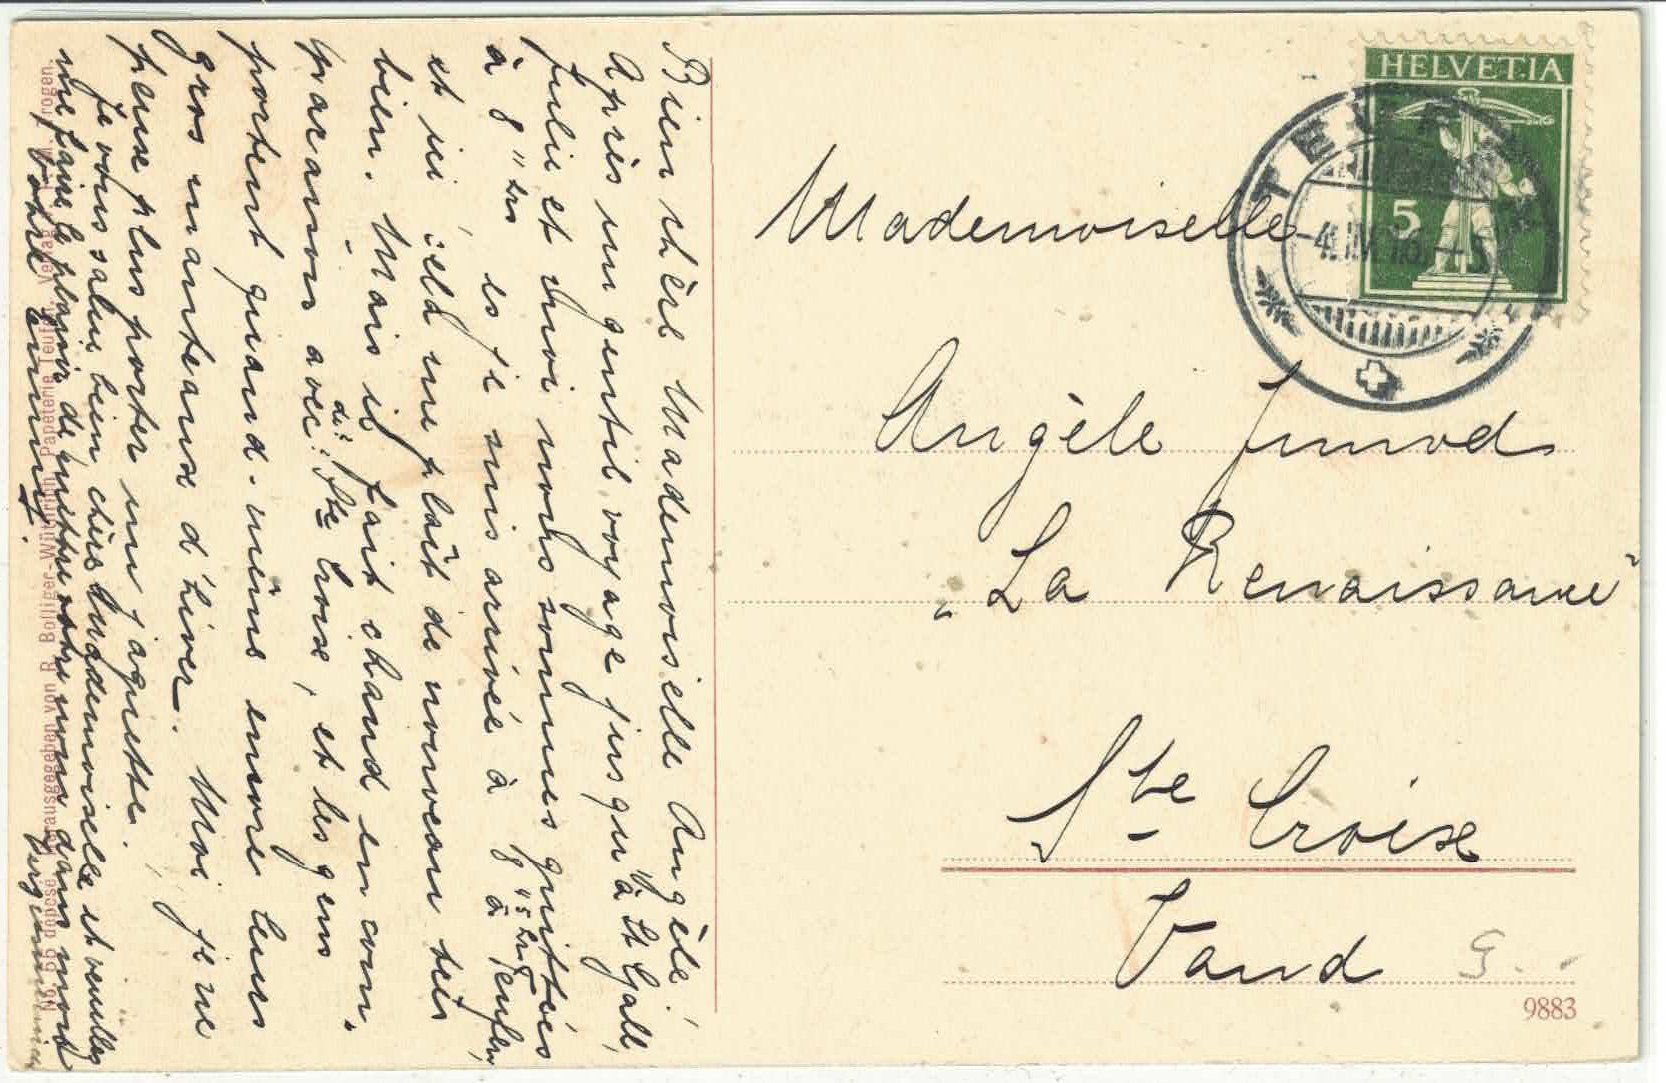 Bien chère Mademoiselle Angèle!
Après un gentil voyage jusqu'à St Gall,
Julie et moi nous sommes quittées
à 8" hrs es je suis arrivée à 8"5 hrs à Teufen,
et ici, cela me plaît de nouveau très
bien. Mais il fait chaud en com-
paraison avec: die: Ste Croix, et les gens
portent quand-même encore leurs
gros manteaux d'hiver. Moi je ne
peux plus porter un jaquette.
Je vous salue bien, chère Mademoiselle et veuillez
me faire le plaisir de mettre votre nom dans
Votre Emmy.
No. 66 déposé. Herausgegeben von R. Bolliger-Wüthrich, Papeterie Teufen, Verlag
rogen.
HELVETIA
5
TEUFEN
Mademoiselle
Angèle Junod
"La Renaissance"
Ste Croix
Vaud
9883